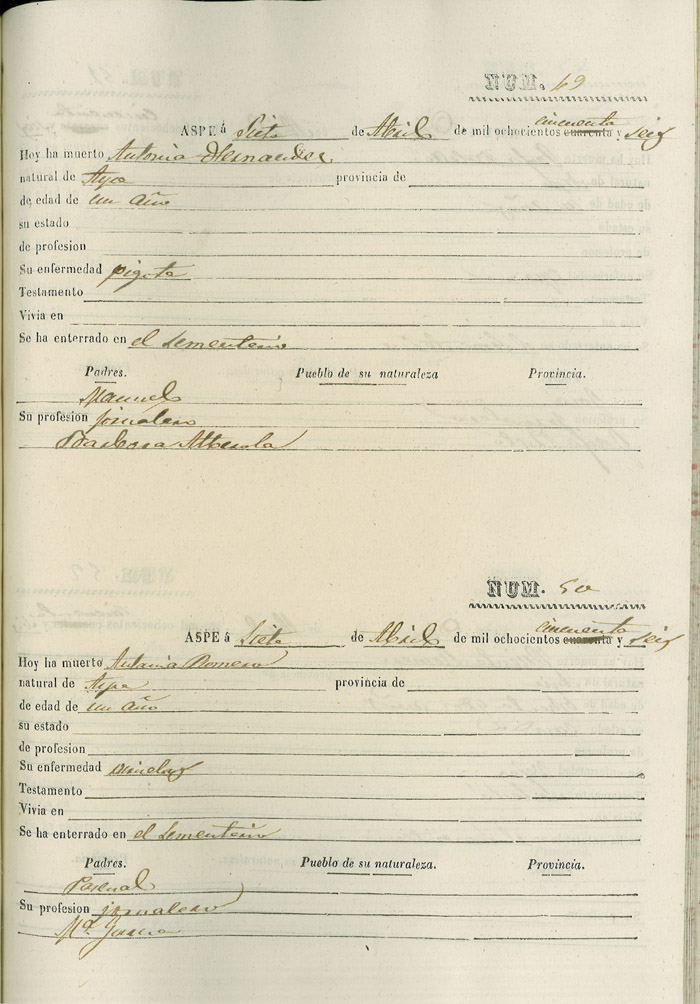 NUM. 49
cincuenta
ASPE á Siete de Abril de mil ochocientos cuarenta y seis
Hoy ha muerto Antonia Hernandez
natural de Aspe provincia de
de edad de un año
su estado
de profesion
Su enfermedad pigota
Testamento
Vivia en
Se ha enterrado en el Sementerio
Padres. Pueblo de su naturaleza Provincia.
Manuel
Su profesion jornalero
Barbara Alberola
NUM. 50
cincuenta
ASPE á Siete de Abril de mil ochocientos cuarenta y seis
Hoy ha muerto Antonia Romero
natural de Aspe provincia de
de edad de un año
su estado
de profesion
Su enfermedad
Testamento
Vivia en
Se ha enterrado en el Sementerio
Padres. Pueblo de su naturaleza. Provincia.
Pascual
Su profesion jornalero
Mª